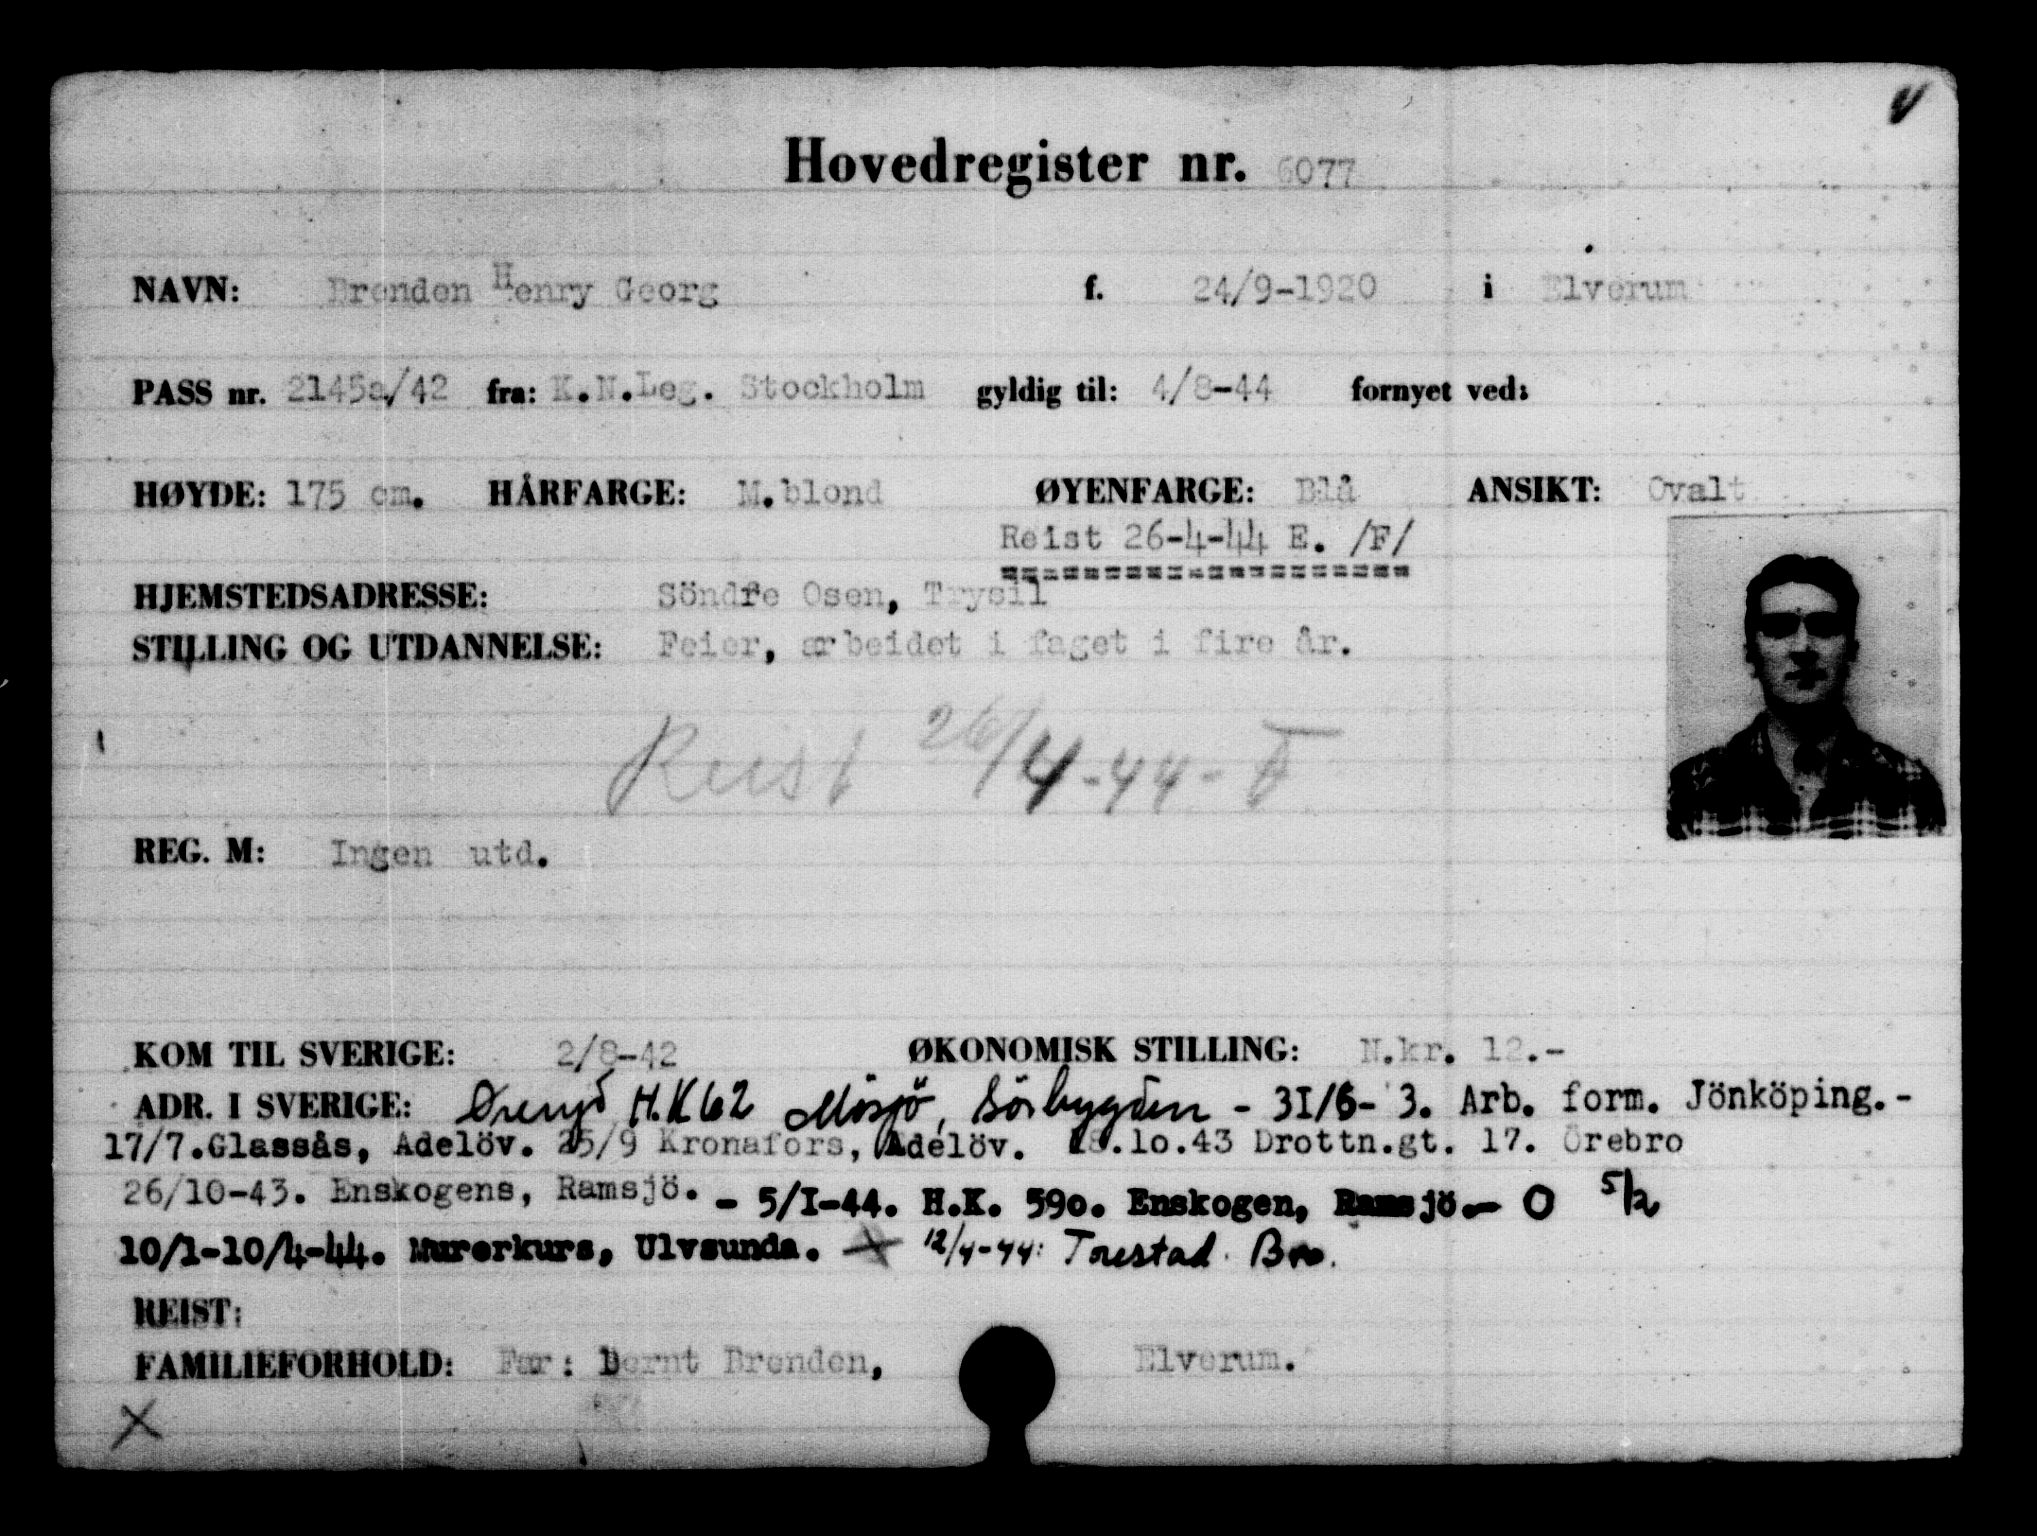 4
Hovedregister nr. 6077
NAVN: Brenden Henry Georg f. 24/9-1920 i Elverum
PASS nr. 2145a/42 fra: K.N.Leg. Stockholm gyldig til: 4/8-44 fornyet ved:
HØYDE: 175 cm. HÅRFARGE: M.blond ØYENFARGE: Blå ANSIKT: Ovalt
Reist 26-4-44 E. /F/
HJEMSTEDSADRESSE: Söndre Osen, Trysil
STILLING OG UTDANNELSE: Feier, arbeidet i faget i fire år.
Reist 26/4-44- F
REG. M: Ingen utd.
KOM TIL SVERIGE: 2/8-42 ØKONOMISK STILLING: N.kr. 12.-
ADR. I SVERIGE: H.K 62 Mosjö, Sörbygden - 31/6- 3. Arb. form. Jönköping.-
17/7.Glassås, Adelöv. 25/9 Kronafors, Adelöv. 18.1o.43 Drottn.gt. 17. Örebro
26/10-43. Enskogens, Ramsjö. - 5/I-44. H.K. 59o. Enskogen, Ramsjö.- O 5/2
10/1-10/4-44. Murerkurs, Ulvsunda. X 12/4-44: Torestad Bro.
REIST:
FAMILIEFORHOLD: Far: Bernt Brenden, Elverum.
X